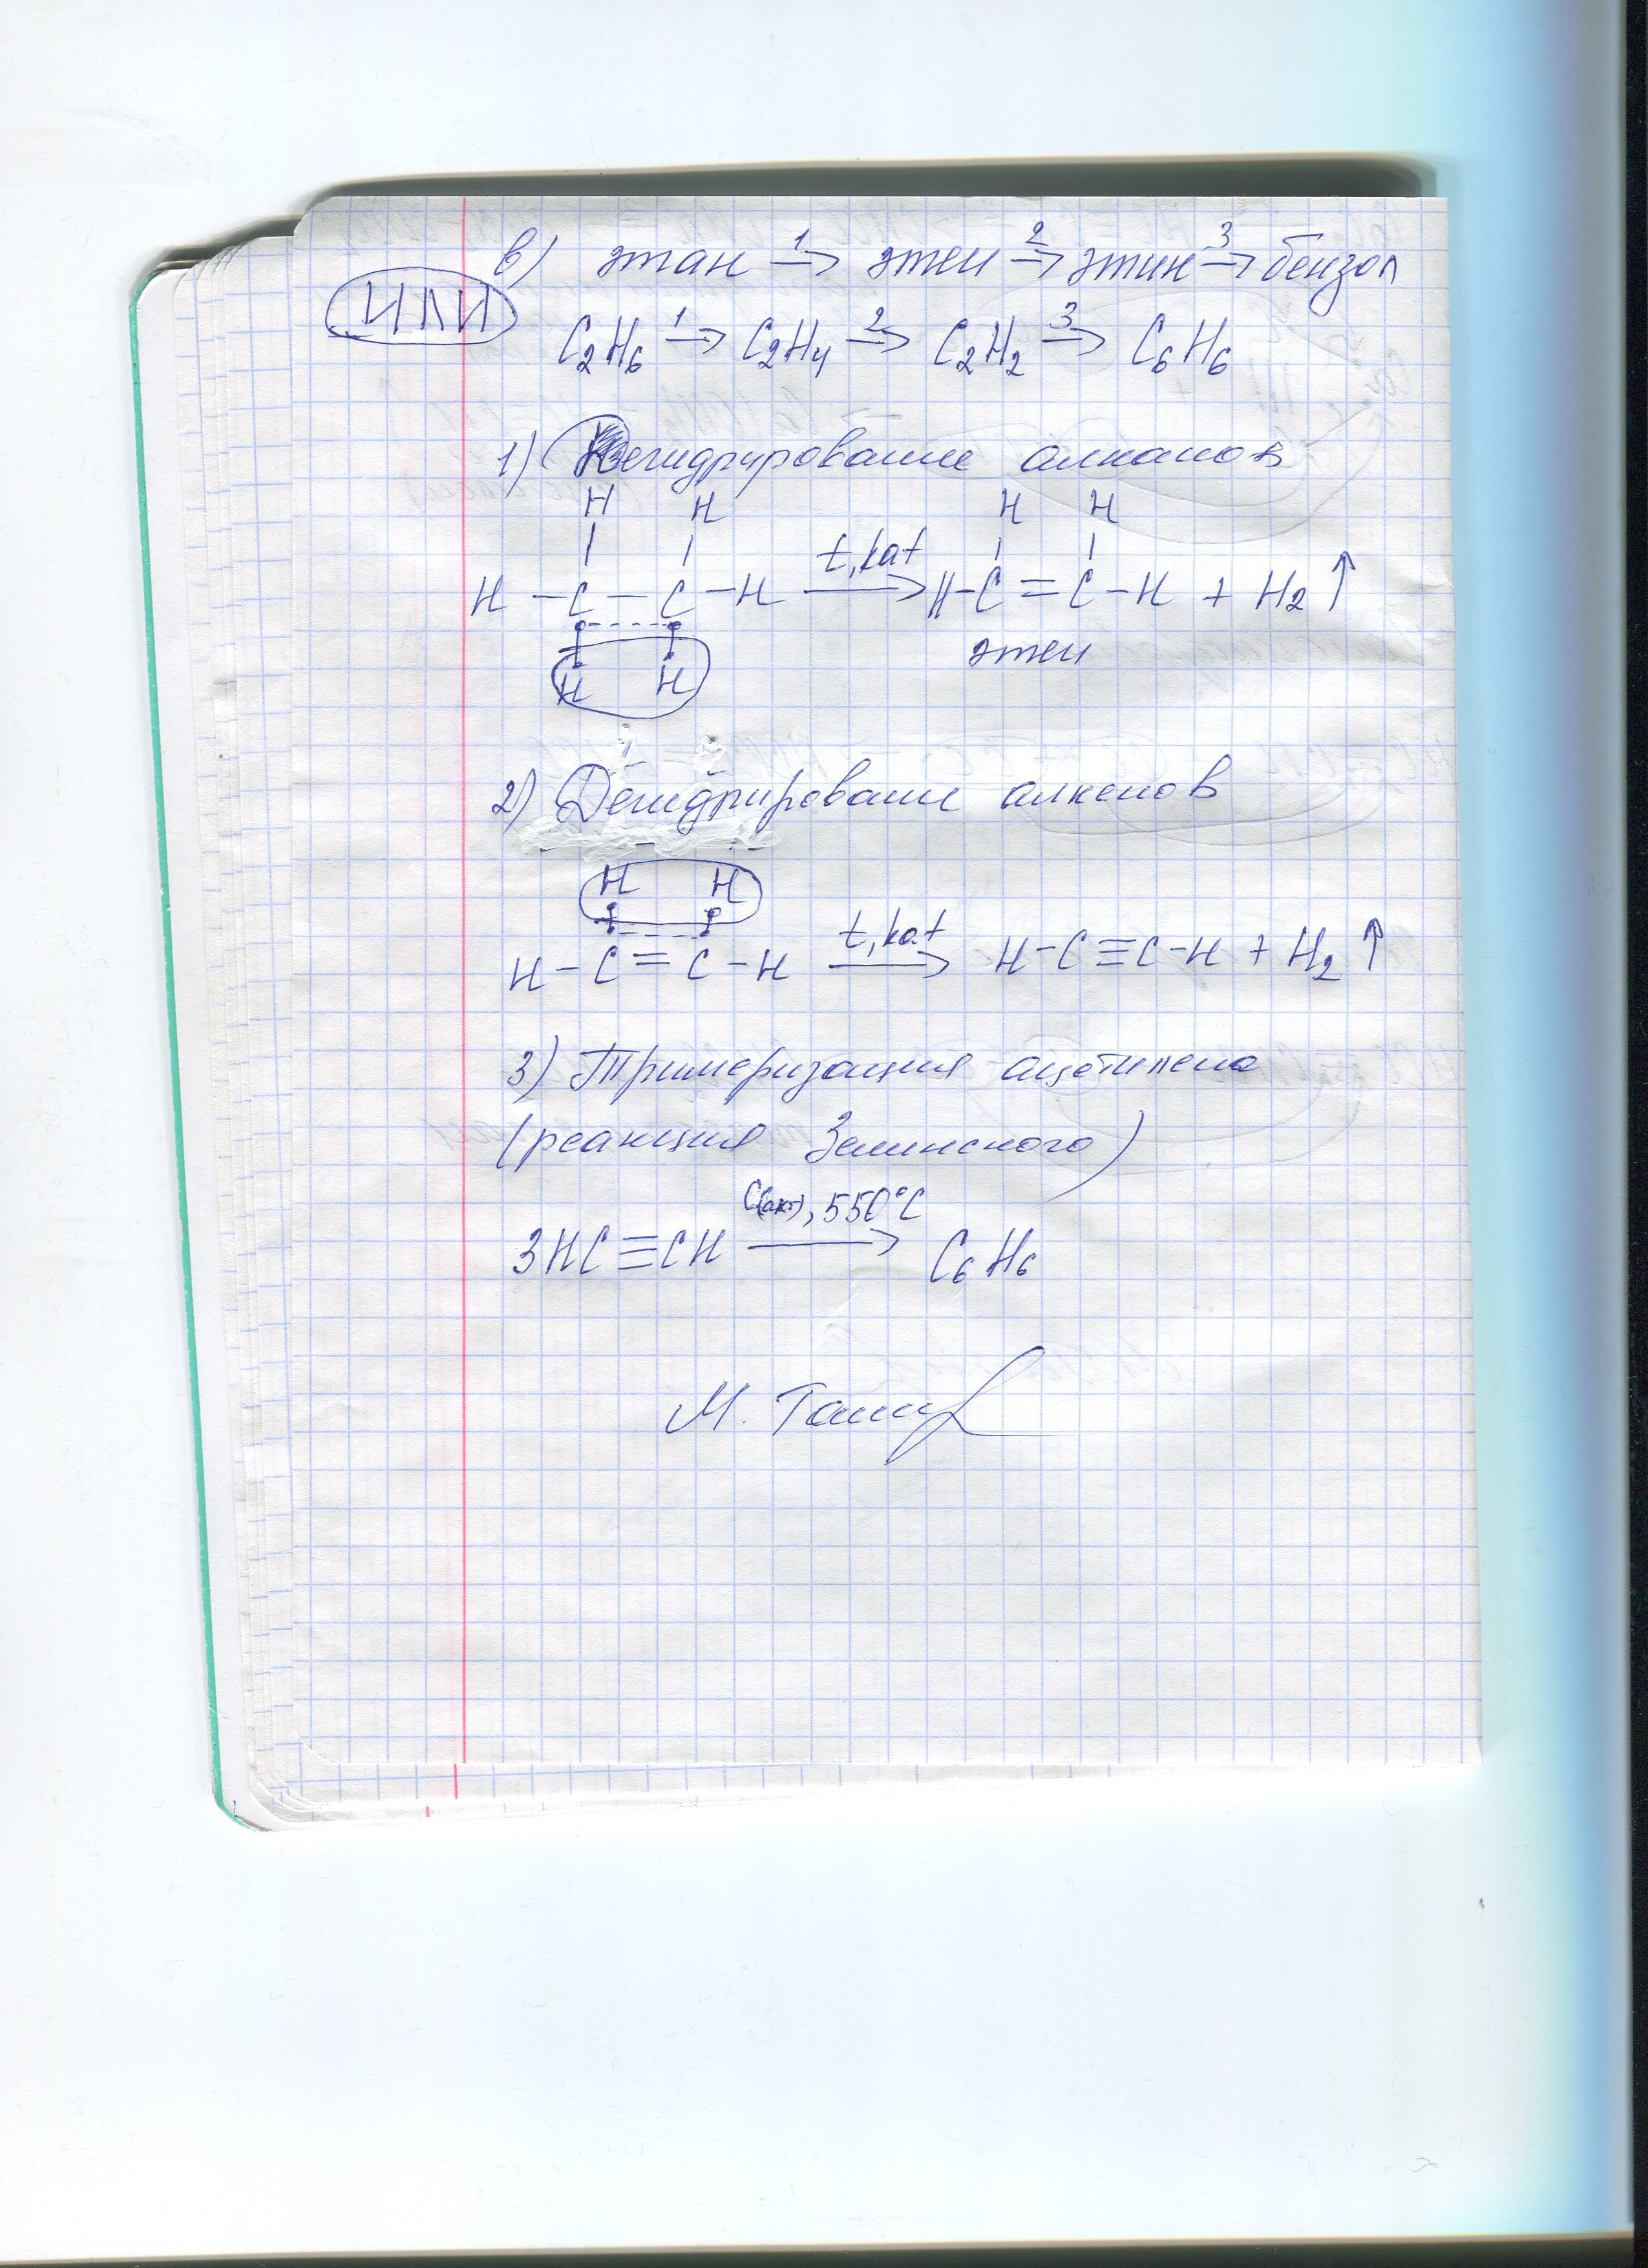 в) этан 1→ этен 2→ этин 3→ бензол
ИЛИ
C₂H₆ 1→ C₂H₄ 2→ C₂H₂ 3→ C₆H₆
1) Дегидрирование алканов
H H H H
t, kat
H – C – C – H → H – C = C – H + H₂ ↑
H H
этен
2) Дегидрирование алкенов
H H
t, kat
H – C = C – H → H – C ≡ C – H + H₂ ↑
3) Тримеризация ацетилена
(реакция Зелинского)
C(акт), 550°C
3HC ≡ CH → C₆H₆
М.